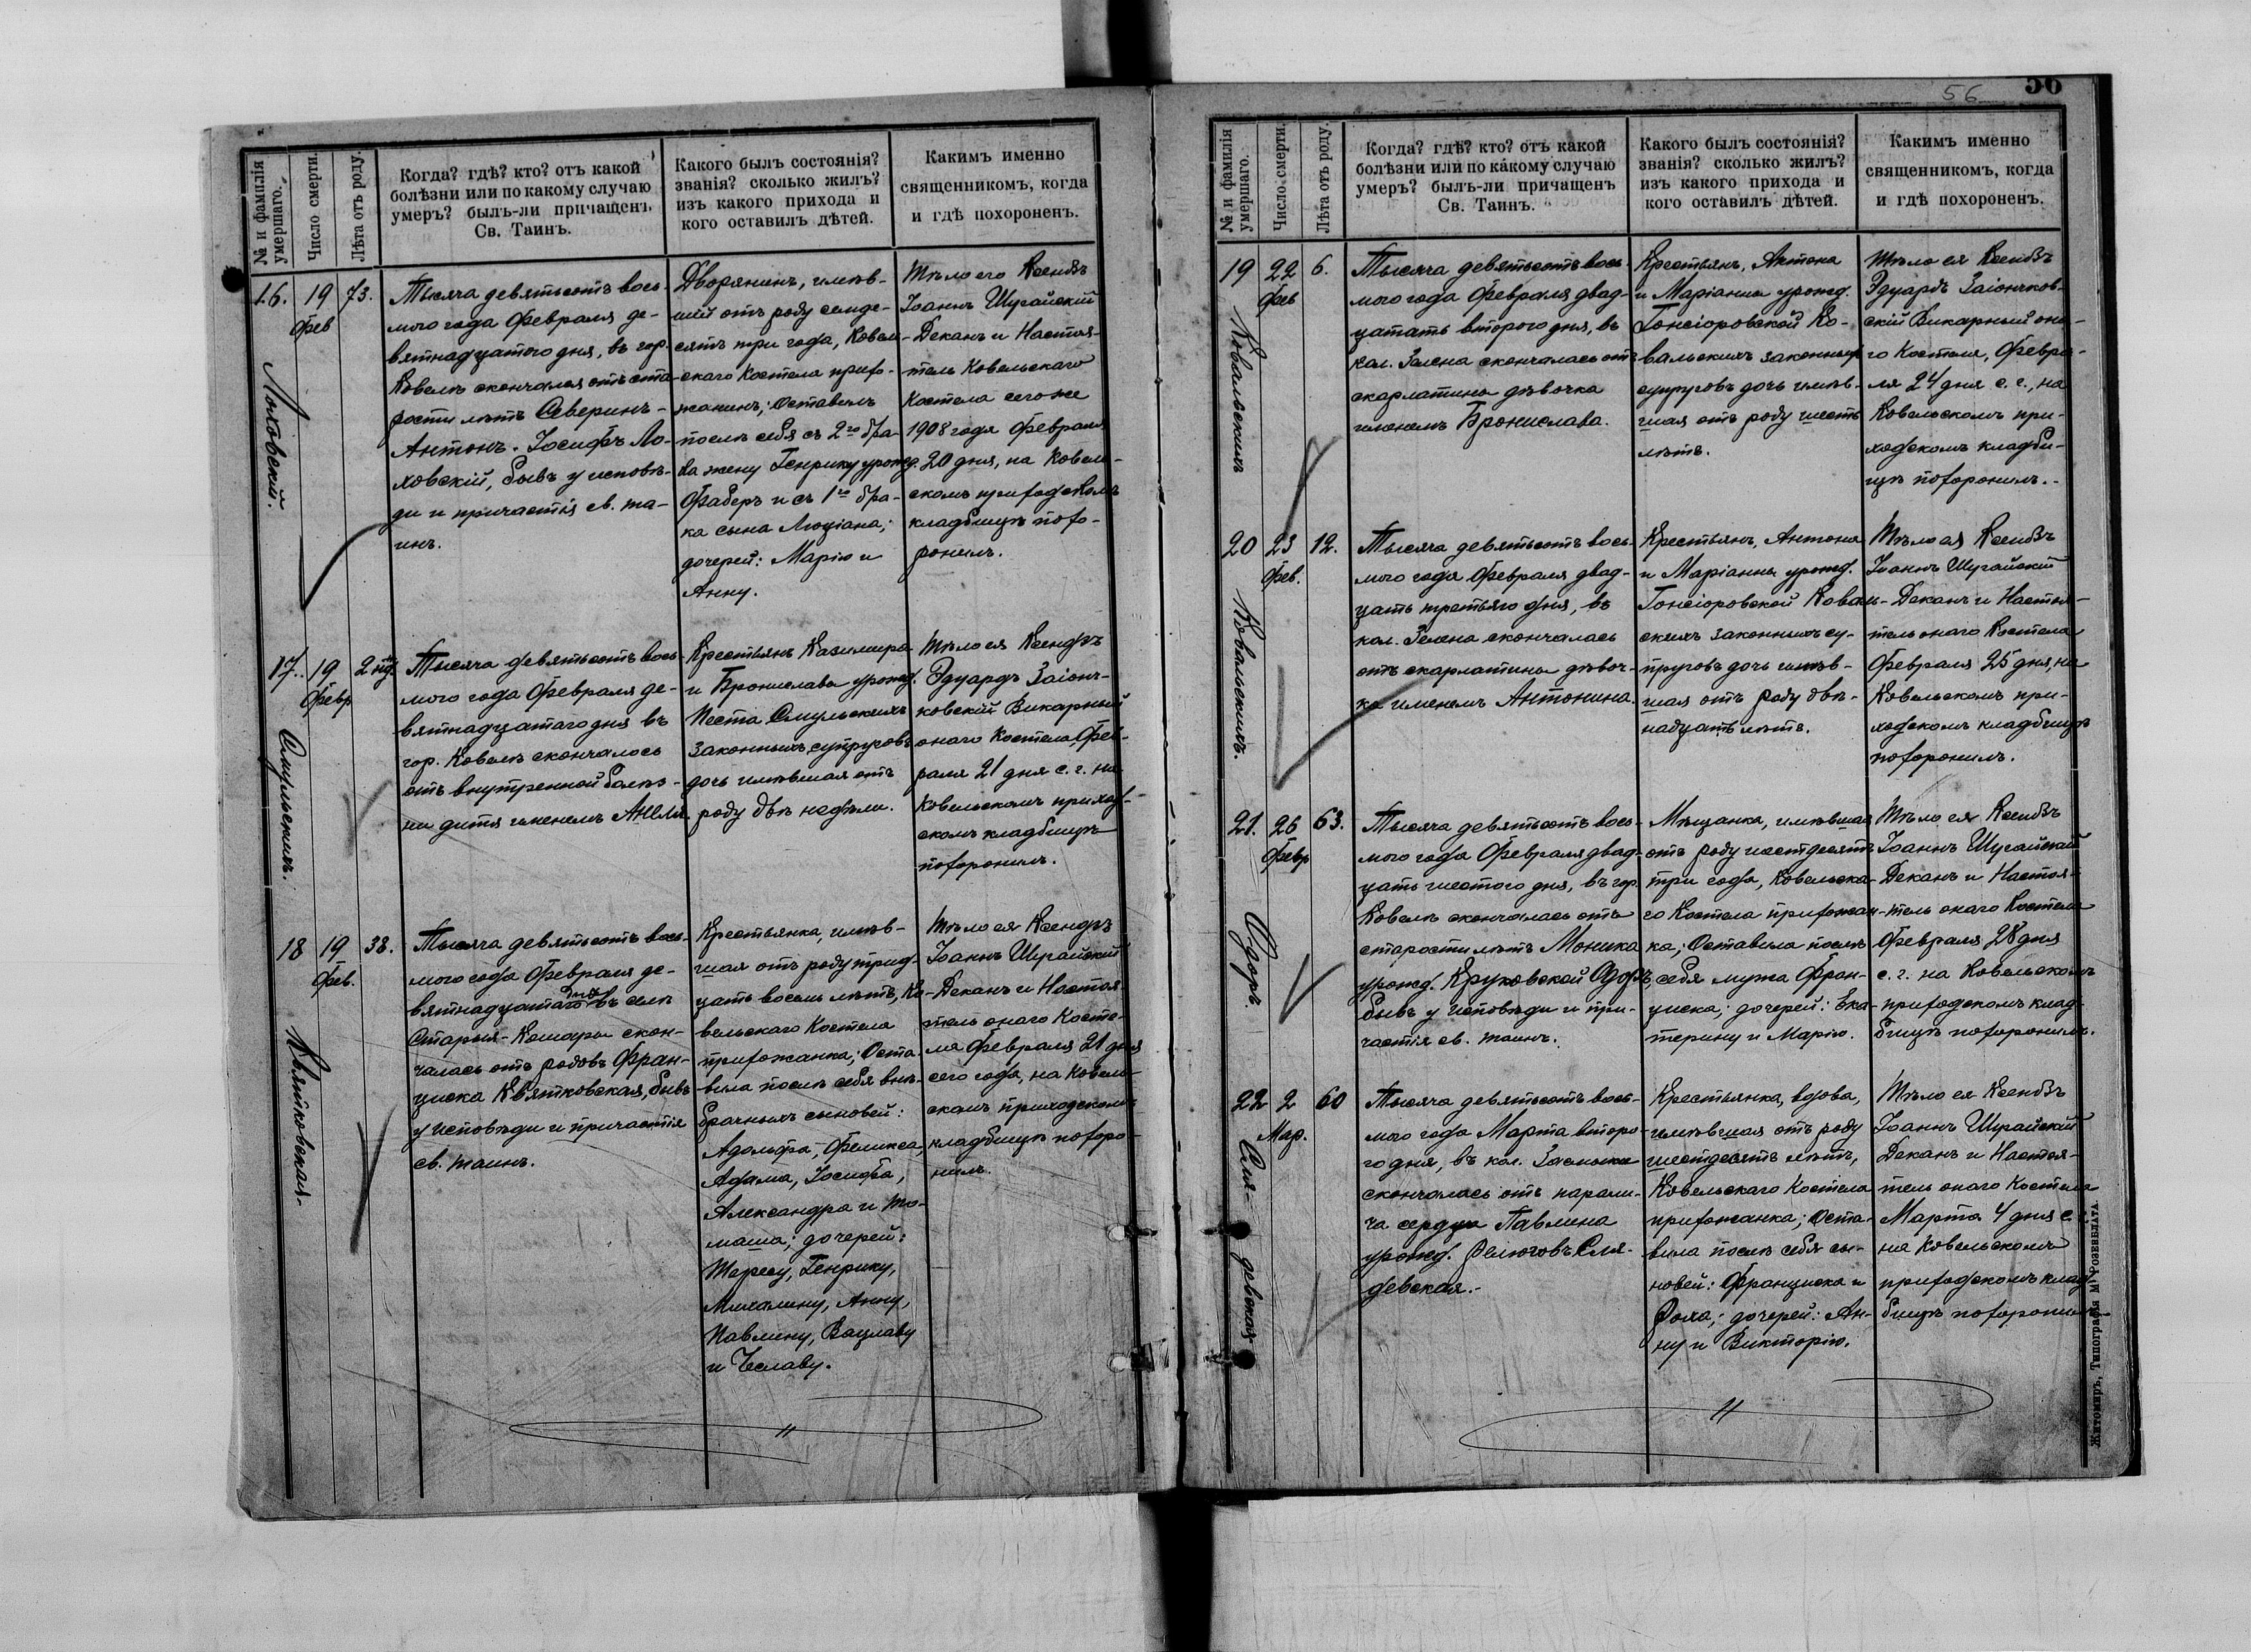 № и фамилія умершаго.
Число смерти.
Лѣта отъ роду.
Когда? гдѣ? кто? отъ какой
болѣзни или по какому случаю
умеръ? былъ-ли причащенъ
Св. Таинъ.
Какого былъ состоянія?
званія? сколько жилъ?
изъ какого прихода и
кого оставилъ дѣтей.
Какимъ именно
священникомъ, когда
и гдѣ похороненъ.
16.
Лоховскій.
19
Фев
73.
Тысяча девятьсотъ вось-
мого года Февраля де-
вятнадцатого дня, въ гор.
Ковелѣ скончался отъ ста-
рости лѣтъ Северинъ-
Антонъ-Іосифъ Ло-
ховскій, бывъ у исповѣ-
ди и причастія св. та-
инъ.
Дворянинъ, имѣв-
шій отъ роду семде-
сятъ три года, Ковель-
скаго Костела прихо-
жанинъ; Оставилъ
послѣ себя съ 2го бра-
ка жену Генрику урожд.
Фаберъ и съ 1го бра-
ка сына Люціана;
дочерей: Марію и
Анну.
Тѣло его Ксендзъ
Іоаннъ Шугайскій
Деканъ и Настоя-
тель Ковельскаго
Костела сего же
1908 года Февраля
20 дня, на Ковель-
скомъ приходскомъ
кладбищѣ похо-
ронилъ.
17.
Смульскихъ.
19
Февр
2 нед.
Тысяча девятьсотъ вось-
мого года Февраля де-
вятнадцатаго дня въ
гор. Ковелѣ скончалось
отъ внутренной болѣз-
ни дитя именемъ Анеля.
Крестьянъ Казимира
и Брониславы урожд.
Песта Смульскихъ
законныхъ супруговъ
дочь имѣвшая отъ
роду двѣ недѣли.
Тѣло ея Ксендзъ
Эдуардъ Заіонч-
ковскій Викарный
онаго Костела, Фев-
раля 21 дня с. г. на
Ковельскомъ приход-
скомъ кладбищѣ
похоронилъ.
18
Квятковская.
19
Фев.
38.
Тысяча девятьсотъ вось-
мого года Февраля де-
вятнадцатаго дня въ селѣ
Старыя-Кошары скон-
чалась отъ родовъ Фран-
циска Квятковская, бывъ
у исповѣди и причастія
св. таинъ.
Крестьянка, имѣв-
шая отъ роду трид-
цать восемь лѣтъ, Ко-
вельскаго Костела
прихожанка; Оста-
вила послѣ себя внѣ-
брачныхъ сыновей:
Адольфа, Феликса,
Адама, Іосифа,
Александра и То-
маша; дочерей:
Тересу, Генрику,
Михалину, Анну,
Павлину, Вацлаву
и Чеславу.
Тѣло ея Ксендзъ
Іоаннъ Шугайскій
Деканъ и Настоя-
тель онаго Косте-
ла Февраля 21 дня
сего года, на Ковель-
скомъ приходскомъ
кладбищѣ похоро-
нилъ.
56
56
№ и фамилія умершаго.
Число смерти.
Лѣта отъ роду.
Когда? гдѣ? кто? отъ какой
болѣзни или по какому случаю
умеръ? былъ-ли причащенъ
Св. Таинъ.
Какого былъ состоянія?
званія? сколько жилъ?
изъ какого прихода и
кого оставилъ дѣтей.
Какимъ именно
священникомъ, когда
и гдѣ похороненъ.
19
Ковальскихъ
22
Фев
6.
Тысяча девятьсотъ вось-
мого года Февраля двад-
цатать второго дня, въ
кол. Зелена скончалась отъ
скарлатины дѣвочка
именемъ Бронислава.
Крестьянъ, Антона
и Маріанны урожд.
Гонсіоровской Ко-
вальскихъ законныхъ
супруговъ дочь имѣв-
шая отъ роду шесть
лѣтъ.
Тѣло ея Ксендзъ
Эдуардъ Заіончков-
скій Викарный она-
го Костела, Февра-
ля 24 дня с. г., на
Ковельскомъ при-
ходскомъ кладби-
щѣ похоронилъ.
20
Ковальскихъ.
23
Фев.
12.
Тысяча девятьсотъ вось-
мого года Февраля двад-
цать третьяго дня, въ
кол. Зелена скончалась
отъ скарлатины дѣвоч-
ка именемъ Антонина.
Крестьянъ, Антона
и Маріанны урожд.
Гонсіоровской Коваль-
скихъ законныхъ су-
пруговъ дочь имѣв-
шая отъ роду двѣ-
надцать лѣтъ.
Тѣло ея Ксендзъ
Іоаннъ Шугайскій
Деканъ и Настоя-
тель онаго Костела
Февраля 25 дня, на
Ковельскомъ при-
ходскомъ кладбищѣ
похоронилъ.
21.
Одоръ.
26
Февр
63.
Тысяча девятьсотъ вось-
мого года Февраля двад-
цать шестого дня, въ гор.
Ковелѣ скончалась отъ
старости лѣтъ Моника
урожд. Круковской Одоръ,
бывъ у исповѣди и при-
частія св. таинъ.
Мѣщанка, имѣвшая
отъ роду шестдесятъ
три года, Ковельска-
го Костела прихожан-
ка; Оставила послѣ
себя мужа Фран-
циска; дочерей: Ека-
терину и Марію.
Тѣло ея Ксендзъ
Іоаннъ Шугайскій
Деканъ и Настоя-
тель онаго Костела
Февраля 28 дня
с. г. на Ковельскомъ
приходскомъ клад-
бищѣ похоронилъ.
22
Сля-девская
2
Мар.
60
Тысяча девятьсотъ вось-
мого года Марта второ-
го дня, въ кол.
скончалась отъ парали-
ча сердца Павлина
урожд. Сля-
девская.
Крестьянка, вдова,
имѣвшая отъ роду
шестдесятъ лѣтъ,
Ковельскаго Костела
прихожанка; Оста-
вила послѣ себя сы-
новей: Франциска и
Роха; дочерей: Ан-
ну и Викторію.
Тѣло ея Ксендзъ
Іоаннъ Шугайскій
Деканъ и Настоя-
тель онаго Костела
Марта 4 дня с. г.
на Ковельскомъ
приходскомъ клад-
бищѣ похоронилъ
Житомиръ, Типографія М. Розенблата